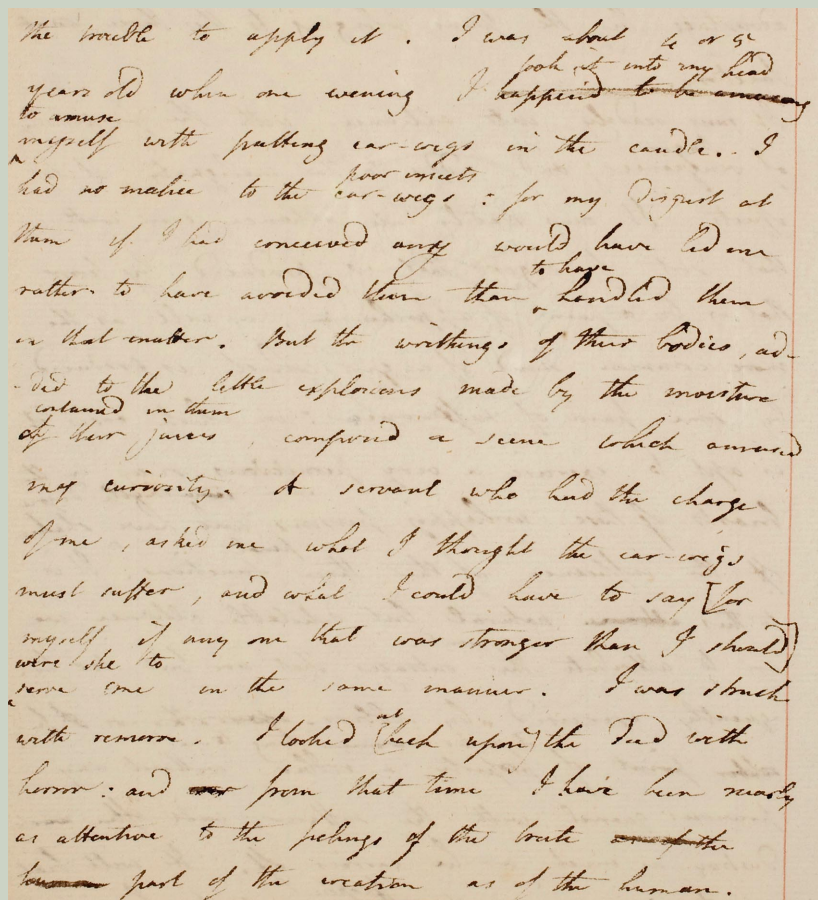 the trouble to apply it . I was about 4 or 5
took it into my head
years old when one evening I happen'd to be amusing
to amuse
myself with putting ear-wigs in the candle. I
poor insects
had no malice to the ear-wigs : for my disgust at
them if I had conceived any would have led me
to have
rather to have avoided them than handled them
in that matter. But the writhings of their bodies, ad-
-ded to the little explosions made by the moisture
contained in them
of their juices , composed a scene which amused
my curiosity. A servant who had the charge
of me , asked me what I thought the ear-wigs
must suffer , and what I could have to say [for
myself if any one that was stronger than I should]
were she to
serve me in the same manner. I was struck
with remorse. I looked [back upon] the deed with
at
horror : and from that time I have been nearly
as attentive to the feelings of the brute as of the
human part of the creation as of the human.